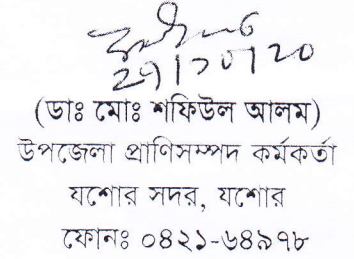 (ডাঃ মোঃ শফিউল আলম)
উপজেলা প্রাণিসম্পদ কর্মকর্তা
যশোর সদর, যশোর
ফোনঃ ০৪২১-৬৪৯৭৮